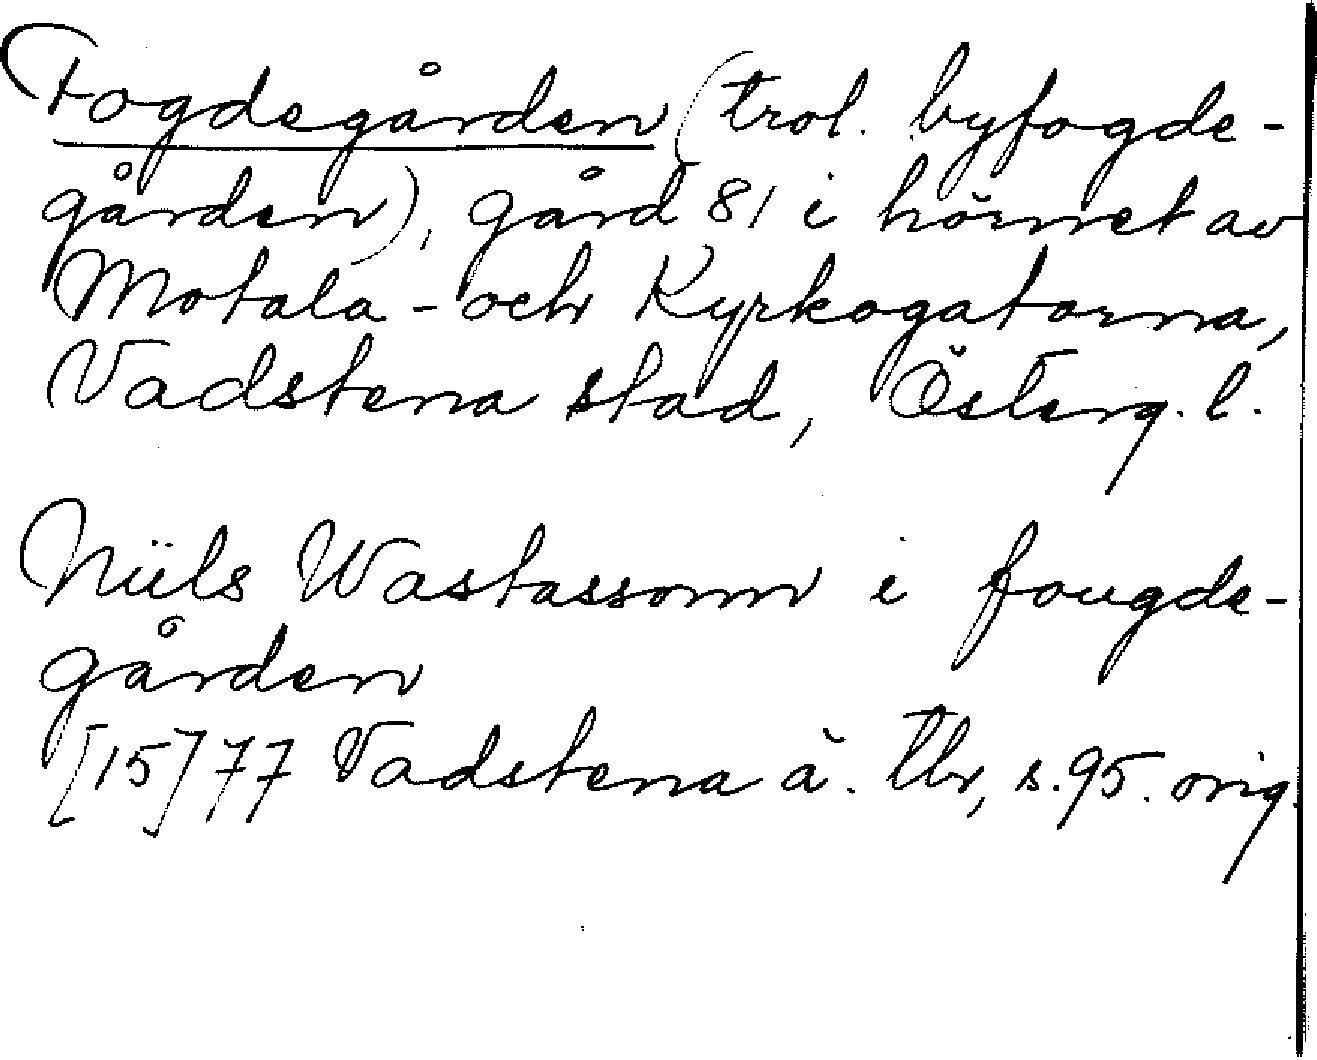 Fogdegården (trol. byfogde-
gården), gård 81 i hörnet av
Motala- och Kyrkogatorna,
Vadstena stad, Österg. l.
Niils Wastassonn i fougde-
gården
[15]77 Vadstena ä. tb, s. 95. orig.